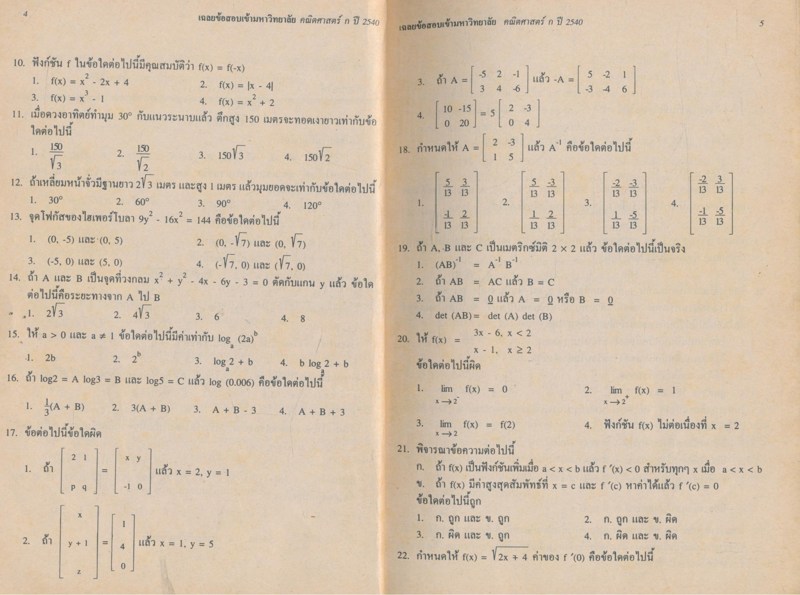 4
เฉลยข้อสอบเข้ามหาวิทยาลัย คณิตศาสตร์ ก ปี 2540
10. ฟังก์ชัน f ในข้อใดต่อไปนี้มีคุณสมบัติว่า f(x) = f(-x)
1. f(x) = x² - 2x + 4 2. f(x) = |x - 4|
3. f(x) = x³ - 1 4. f(x) = x² + 2
11. เมื่อดวงอาทิตย์ทำมุม 30° กับแนวระนาบแล้ว ตึกสูง 150 เมตรจะทอดเงายาวเท่ากับข้อ
ใดต่อไปนี้
1. 150/√3 2. 150/√2 3. 150√3 4. 150√2
12. ถ้าเหลี่ยมหน้าจั่วมีฐานยาว 2√3 เมตร และสูง 1 เมตร แล้วมุมยอดจะเท่ากับข้อใดต่อไปนี้
1. 30° 2. 60° 3. 90° 4. 120°
13. จุดโฟกัสของไฮเพอร์โบลา 9y² - 16x² = 144 คือข้อใดต่อไปนี้
1. (0, -5) และ (0, 5) 2. (0, -√7) และ (0, √7)
3. (-5, 0) และ (5, 0) 4. (-√7, 0) และ (√7, 0)
14. ถ้า A และ B เป็นจุดที่วงกลม x² + y² - 4x - 6y - 3 = 0 ตัดกับแกน y แล้ว ข้อใด
ต่อไปนี้คือระยะทางจาก A ไป B
1. 2√3 2. 4√3 3. 6 4. 8
15. ให้ a > 0 และ a ≠ 1 ข้อใดต่อไปนี้มีค่าเท่ากับ logₐ (2a)ᵇ
1. 2b 2. 2ᵇ 3. logₐ2 + b 4. b logₐ2 + b
16. ถ้า log2 = A log3 = B และ log5 = C แล้ว log (0.006) คือข้อใดต่อไปนี้
1. 1/3(A + B) 2. 3(A + B) 3. A + B - 3 4. A + B + 3
17. ข้อต่อไปนี้ข้อใดผิด
1. ถ้า [2 1; p q] = [x y; -1 0] แล้ว x = 2, y = 1
2. ถ้า [x; y + 1; z] = [1; 4; 0] แล้ว x = 1, y = 5
เฉลยข้อสอบเข้ามหาวิทยาลัย คณิตศาสตร์ ก ปี 2540
5
3. ถ้า A = [-5 2 -1; 3 4 -6] แล้ว -A = [5 -2 1; -3 -4 6]
4. [10 -15; 0 20] = 5 [2 -3; 0 4]
18. กำหนดให้ A = [2 -3; 1 5] แล้ว A⁻¹ คือข้อใดต่อไปนี้
1. [5/13 3/13; -1/13 2/13] 2. [5/13 -3/13; 1/13 2/13] 3. [-2/13 -3/13; 1/13 -5/13] 4. [-2/13 3/13; -1/13 -5/13]
19. ถ้า A, B และ C เป็นเมตริกซ์มิติ 2 × 2 แล้ว ข้อใดต่อไปนี้เป็นจริง
1. (AB)⁻¹ = A⁻¹ B⁻¹
2. ถ้า AB = AC แล้ว B = C
3. ถ้า AB = 0 แล้ว A = 0 หรือ B = 0
4. det (AB)= det (A) det (B)
20. ให้ f(x) = 3x - 6, x < 2
x - 1, x ≥ 2
ข้อใดต่อไปนี้ผิด
1. lim x→2⁻ f(x) = 0 2. lim x→2⁺ f(x) = 1
3. lim x→2 f(x) = f(2) 4. ฟังก์ชัน f(x) ไม่ต่อเนื่องที่ x = 2
21. พิจารณาข้อความต่อไปนี้
ก. ถ้า f(x) เป็นฟังก์ชันเพิ่มเมื่อ a < x < b แล้ว f ′(x) < 0 สำหรับทุกๆ x เมื่อ a < x < b
ข. ถ้า f(x) มีค่าสูงสุดสัมพัทธ์ที่ x = c และ f ′(c) หาค่าได้แล้ว f ′(c) = 0
ข้อใดต่อไปนี้ถูก
1. ก. ถูก และ ข. ถูก 2. ก. ถูก และ ข. ผิด
3. ก. ผิด และ ข. ถูก 4. ก. ผิด และ ข. ผิด
22. กำหนดให้ f(x) = √2x + 4 ค่าของ f ′(0) คือข้อใดต่อไปนี้